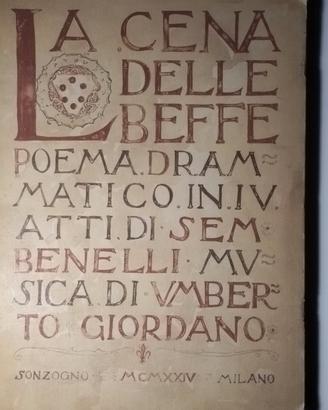 LA CENA
DELLE
BEFFE
POEMA.DRAM≈
MATICO.IN.IV.
ATTI.DI.SEM
BENELLI.MV≈
SICA.DI.VMBER≈
TO GIORDANO
SONZOGNO MCMXXIV MILANO